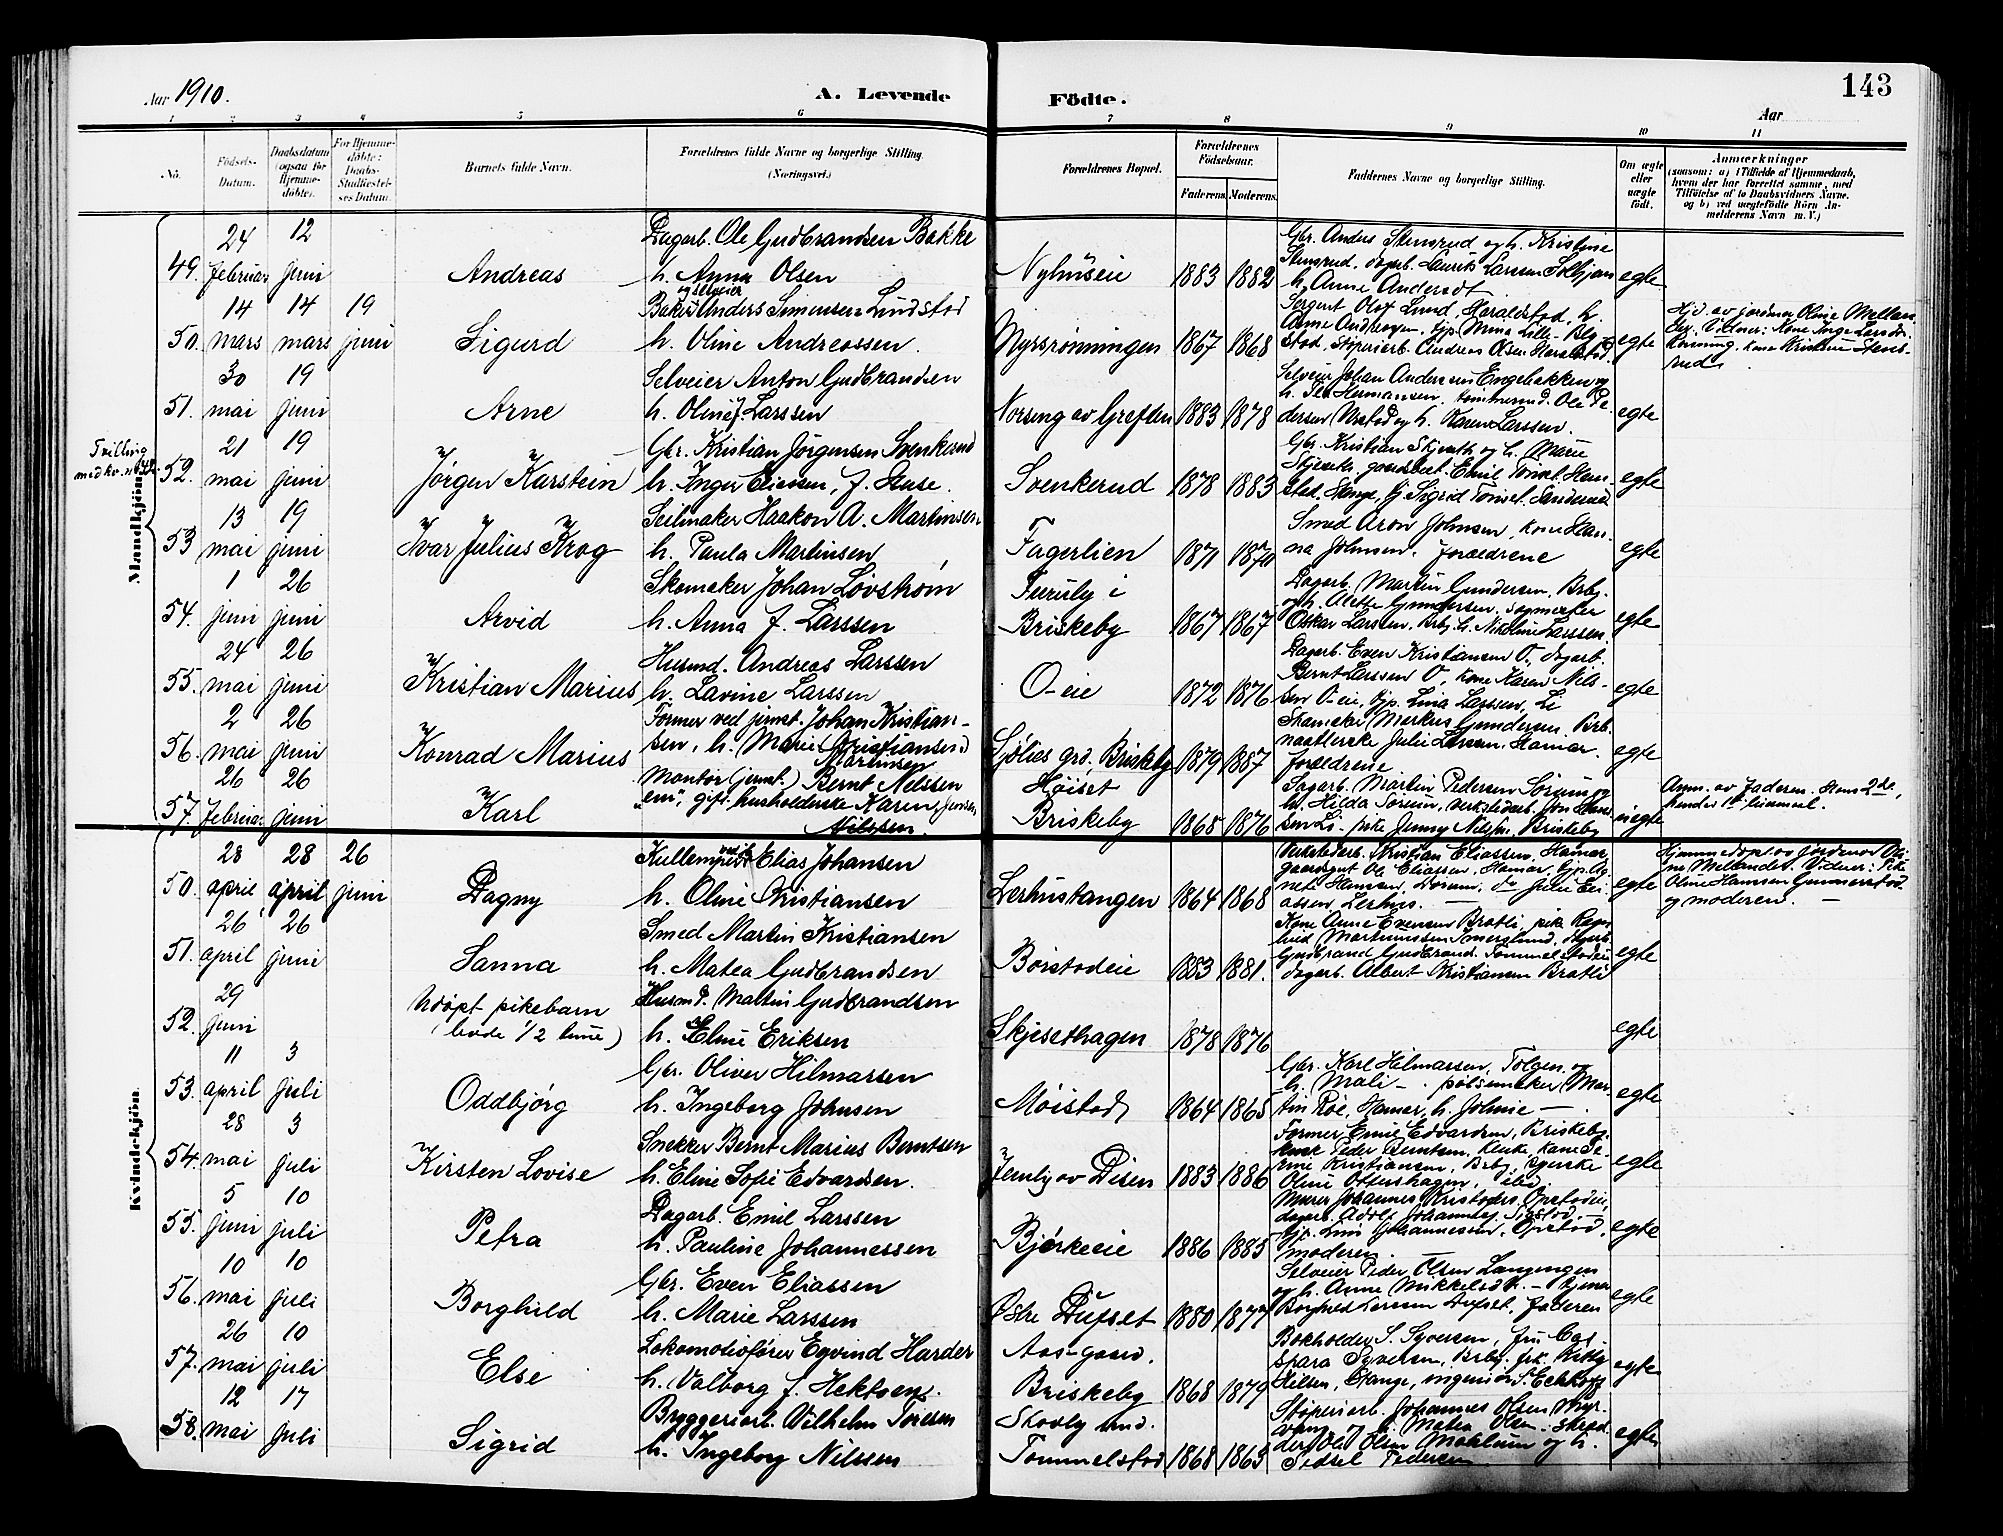 Aar 1910.
A. Levende Födte.
143
Aar
1 2 3 4 5 6 7 8 9 10 11
No.
Födsels-Datum.
Daabsdatum (ogsaa for Hjemme-döbte).
For Hjemme-döbte: Daabs-Stadfæstel-ses Datum.
Barnets fulde Navn.
Forældrenes fulde Navne og borgerlige Stilling. (Næringsvei.)
Forældrenes Bopæl.
Forældrenes Födselsaar.
Faderens. Moderens.
Faddernes Navne og borgerlige Stilling.
Om ægte eller uægte födt.
Anmærkninger
(saasom: a) i Tilfælde af Hjemmedaab,
hvem der har forrettet samme, med
Tilföielse af to Daabsvidners Navne.
og b) ved uægtefödte Börn An-
melderens Navn m. V.)
Mandkjön.
49. 24 februar 12 juni Andreas
Dagarb. Ole Gudbrandsen Bakke
h. Anna Olsen
1883 1882
Gbr. Anders Stensrud og h. Kristine
Stensrud, dagarb. Laurits Larssen
h. Anne Andersdt
egte
50. 14 mars 14 mars 19 juni Sigurd
Baker og selveier Anders Simensen Lundstad
h. Oline Andreassen.
Myrsrønningen 1867 1868
Sergent Olaf Lund, Haraldstad, h.
stad, støperiarb. Andreas Olsen Haraldstad.
egte
Hjd. av jordmor Oline Mellan-
der. Vidner: Kone Inga Larsdt
Rønning, kone Kristine Stens-
rud.
51. 30 mai 19 juni Arne
Selveier Anton Gudbrandsen
h. Oline f. Larssen
Norseng av Greften 1883 1878
Selveier Johan Andersen Engebakken og
h. Thea Hermansen, tømmermd. Ole Pe-
dersen og h. Karen Larssen.
egte
Tvilling med kv. n° 42.
52. 21 mai 19 juni Jørgen Karstein
Gbr. Kristian Jørgensen Svenkerud
h. Inger Eliassen, f. Huse.
Svenkerud 1878 1883
Gbr. Kristian Skjeseth og h. Marie
Skjeseth, gaardbest. Emil
stad, Stange, fj. Sigrid
egte
53. 13 mai 19 juni Ivar Julius Krog
Seilmaker Haakon A. Martinsen
h. Paula Martinsen
Fagerlien 1871 1870
Smed Aron Johnsen, kone Han-
na Johnsen. forældrene
egte
54. 1 juni 26 juni Arvid
Skomaker Johan Løvstrøm
h. Anna f. Larssen
Furuly i
Briskeby 1867 1867
Dagarb. Martin Gundersen, Brby.
og h. Alette Gundersen,
Oskar Larssen, Brby. h. Nikoline Larssen.
egte
55. 24 mai 26 juni Kristian Marius
Husmd. Andreas Larssen
h. Lavine Larssen
O-eie 1872 1876
Dagarb. Even Kristiansen O., dagarb.
Bernt Larssen O, kone Karen Nils-
sen O-eie, pp. Lina Larssen, Li
egte
56. 2 mai 26 juni Konrad Marius
Former ved jernst. Johan Kristian-
sen, h. Marie Kristiansen
Martinsen
Sjølies grd. Briskeby 1879 1887
Skomaker Markus Gundersen, Brb.
Julie Larssen, Hamar.
forældrene
egte
57. 26 februar 26 juni Karl
Montør (jernst.) Bernt Nilssen
"em", gift. husholderske Karen Jensen
Nilssen.
Høiset
Briskeby 1868 1876
Dagarb. Martin Pedersen Sørum og
h. Hilda Sørum, verkstedarb.
sen Li - pike Jenny Nilssen, Briskeby
uegte
Anm. av faderen. Hans 2det,
hendes 1ste leiermaal.
Kvindekjön.
50. 28 april 28 april 26 juni Dagny
Elias Johansen
h. Oline Kristiansen
Lerhustangen 1864 1868
Verkstedarb. Kristian Eliassen, Hamar,
gaardsgut Ole Eliassen, Hamar, pp. Ag-
nete Hansen, do Julie Eli-
assen Lerhus. —
egte
Hjemmedøpt av jordmor Oli-
ne Mellander. Vidner: Pike
Oline Hansen Gunnerstad
og moderen. —
51. 26 april 26 juni Sanna
Smed Martin Kristiansen
h. Matea Gudbrandsen
Børstadeie 1883 1881.
Kone Anne Evensen Bratli, pike Ragn-
hild Martinussen
Gudbrand Gudbrand. Tommelstadeie
dagarb. Albert Kristiansen Bratli
egte
52. 29 juni
Udøpt pikebarn
(levde 1/2 time)
Husmd. Martin Gudbrandsen
h. Eline Eriksen
Skjesethagen 1878 1876
egte
53. 11 april 3 juli Oddbjørg
Gbr. Oliver Hilmarsen
h. Ingeborg Johnsen
Møistad 1864 1865
Gbr. Karl Hilmarsen, Tolgen og
h. Mali —. pølsemaker Mar-
tin Røe, Hamar, h. Johnie —.
egte
54. 28 mai 3 juli Kirsten Lovise
Snekker Bernt Marius Berntsen
h. Eline Sofie Edvardsen.
Jernby av Disen 1883 1886
Former Emil Edvardsen, Briskeby.
Peder Berntsen, Kone Pe-
rine Kristiansen, Brby,
Oline Ottershagen, ibid.
egte
55. 5 juni 10 juli Petra
Dagarb. Emil Larssen
h. Pauline Johannessen
Bjørkeeie 1886 1885
Murer Johannes Kristoffers. Opstadeie,
dagarb. Adolf Johannessen
pp. Lina Johannessen, Opstad,
moderen. —
egte
56. 10 mai 10 juli Borghild
Gbr. Even Eliassen
h. Marie Larssen
Østre Dufset 1880 1877
Selveier Peder Olsen Langengen
og h. Anne Mikkelsdt. —
Borghild Larssen Dufset, faderen
egte
57. 26 mai 10 juli Else
Lokomotivfører Eyvind Harder
h. Valborg f. Hektoen.
Aas-gaard.
Briskeby 1868 1879
Bokholder S. Syversen, fru Cas-
para Syversen, Brby. frk. Kitty
Nilsen, Stange, ingeniør S. Eckhoff
egte
58. 12 mai 17 juli Sigrid
Bryggeriarb. Vilhelm Toresen
h. Ingeborg Nilssen
Skovly und.
Tommelstad 1868 1865
Støperiarb. Johannes Olsen Myr-
vang og h. Matea Olsen.
der Ole Olsen og h.
Sidsel Pedersen
egte